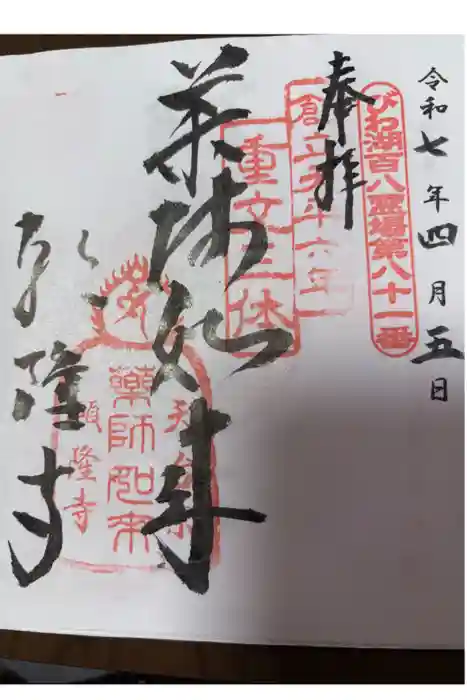 令和七年四月五日
びわ湖百八霊場第八十一番
奉拝
重文三体
薬師如来
薬師如来
隆寺
隆寺